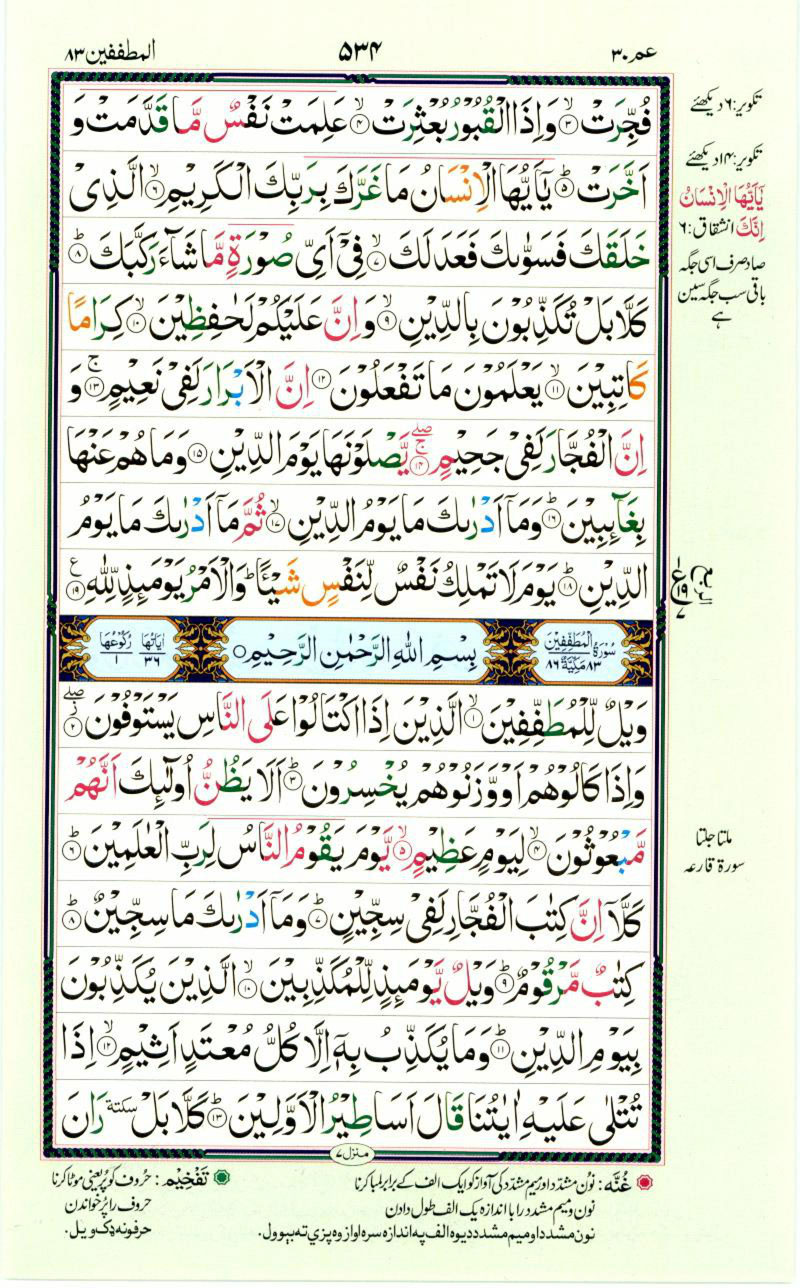 عم ۳۰
۵۳۴
المطففین ۸۳
فُجِّرَتْ ۙ﴿۳﴾ وَاِذَا الْقُبُوْرُ بُعْثِرَتْ ۙ﴿۴﴾ عَلِمَتْ نَفْسٌ مَّا قَدَّمَتْ وَ
اَخَّرَتْ ؕ﴿۵﴾ یٰۤاَیُّهَا الْاِنْسَانُ مَا غَرَّكَ بِرَبِّكَ الْكَرِیْمِ ۙ﴿۶﴾ الَّذِیْ
خَلَقَكَ فَسَوّٰىكَ فَعَدَلَكَ ۙ﴿۷﴾ فِیْۤ اَیِّ صُوْرَةٍ مَّا شَآءَ رَكَّبَكَ ؕ﴿۸﴾
كَلَّا بَلْ تُكَذِّبُوْنَ بِالدِّیْنِ ۙ﴿۹﴾ وَ اِنَّ عَلَیْكُمْ لَحٰفِظِیْنَ ۙ﴿۱۰﴾ كِرَامًا
كَاتِبِیْنَ ۙ﴿۱۱﴾ یَعْلَمُوْنَ مَا تَفْعَلُوْنَ ﴿۱۲﴾ اِنَّ الْاَبْرَارَ لَفِیْ نَعِیْمٍ ۙۚ﴿۱۳﴾ وَ
اِنَّ الْفُجَّارَ لَفِیْ جَحِیْمٍ ۚۖ﴿۱۴﴾ یَّصْلَوْنَهَا یَوْمَ الدِّیْنِ ﴿۱۵﴾ وَمَا هُمْ عَنْهَا
بِغَآىِٕبِیْنَ ؕ﴿۱۶﴾ وَمَاۤ اَدْرٰىكَ مَا یَوْمُ الدِّیْنِ ۙ﴿۱۷﴾ ثُمَّ مَاۤ اَدْرٰىكَ مَا یَوْمُ
الدِّیْنِ ؕ﴿۱۸﴾ یَوْمَ لَا تَمْلِكُ نَفْسٌ لِّنَفْسٍ شَیْـًٔا ؕ وَالْاَمْرُ یَوْمَىِٕذٍ لِّلّٰهِ ﴿۱۹﴾ ع
سُوْرَةُ الْمُطَفِّفِیْنَ
۸۳ مَكِّیَّةٌ ۸۶
بِسْمِ اللّٰهِ الرَّحْمٰنِ الرَّحِیْمِ
اٰیَاتُهَا ۳۶
رُكُوْعُهَا ۱
وَیْلٌ لِّلْمُطَفِّفِیْنَ ۙ﴿۱﴾ الَّذِیْنَ اِذَا اكْتَالُوْا عَلَى النَّاسِ یَسْتَوْفُوْنَ ؗۖ﴿۲﴾
وَاِذَا كَالُوْهُمْ اَوْ وَّزَنُوْهُمْ یُخْسِرُوْنَ ؕ﴿۳﴾ اَلَا یَظُنُّ اُولٰٓىِٕكَ اَنَّهُمْ
مَّبْعُوْثُوْنَ ۙ﴿۴﴾ لِیَوْمٍ عَظِیْمٍ ۙ﴿۵﴾ یَّوْمَ یَقُوْمُ النَّاسُ لِرَبِّ الْعٰلَمِیْنَ ؕ﴿۶﴾
كَلَّاۤ اِنَّ كِتٰبَ الْفُجَّارِ لَفِیْ سِجِّیْنٍ ؕ﴿۷﴾ وَمَاۤ اَدْرٰىكَ مَا سِجِّیْنٌ ؕ﴿۸﴾
كِتٰبٌ مَّرْقُوْمٌ ؕ﴿۹﴾ وَیْلٌ یَّوْمَىِٕذٍ لِّلْمُكَذِّبِیْنَ ۙ﴿۱۰﴾ الَّذِیْنَ یُكَذِّبُوْنَ
بِیَوْمِ الدِّیْنِ ؕ﴿۱۱﴾ وَمَا یُكَذِّبُ بِهٖۤ اِلَّا كُلُّ مُعْتَدٍ اَثِیْمٍ ۙ﴿۱۲﴾ اِذَا
تُتْلٰى عَلَیْهِ اٰیٰتُنَا قَالَ اَسَاطِیْرُ الْاَوَّلِیْنَ ؕ﴿۱۳﴾ كَلَّا بَلْ سكتة رَانَ
منزل ۷
تکویر: ۶ دیکھئے
تکویر: ۱۴ دیکھئے
یٰۤاَیُّهَا الْاِنْسَانُ
اِنَّكَ انشقاق: ۶
صاد صرف اسی جگہ
باقی سب جگہ سین
ہے
ع
۱۹
۷
ملتا جلتا
سورة قارعہ
غُنَّه: نون مشدد اور میم مشدد کی آواز کو ایک الف کے برابر لمبا کرنا
نون و میم مشدد را با اندازہ یک الف طول دادن
نون مشدد او میم مشدد دیوہ الف په اندازه سره اواز وه پزې ته بوول.
تَفْخِیْم: حروف کو پر یعنی موٹا کرنا
حروف را پر خواندن
حرفونه ډک ویل.